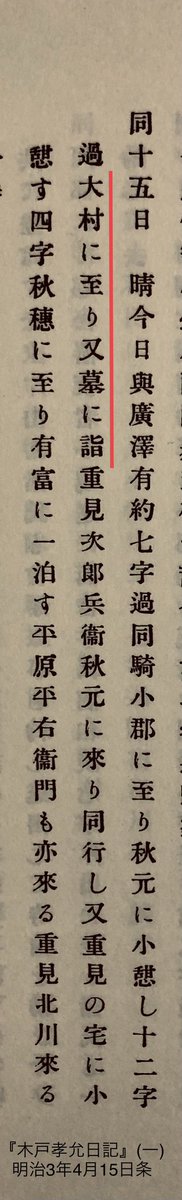 同十五日 晴今日與廣澤有約七字過同騎小郡に至り秋元に小憇し十二字
過大村に至り又墓に詣重見次郎兵衞秋元に來り同行し又重見の宅に小
憇す四字秋穗に至り有富に一泊す平原平右衞門も亦來る重見北川來る
『木戸孝允日記』(一)
明治3年4月15日条